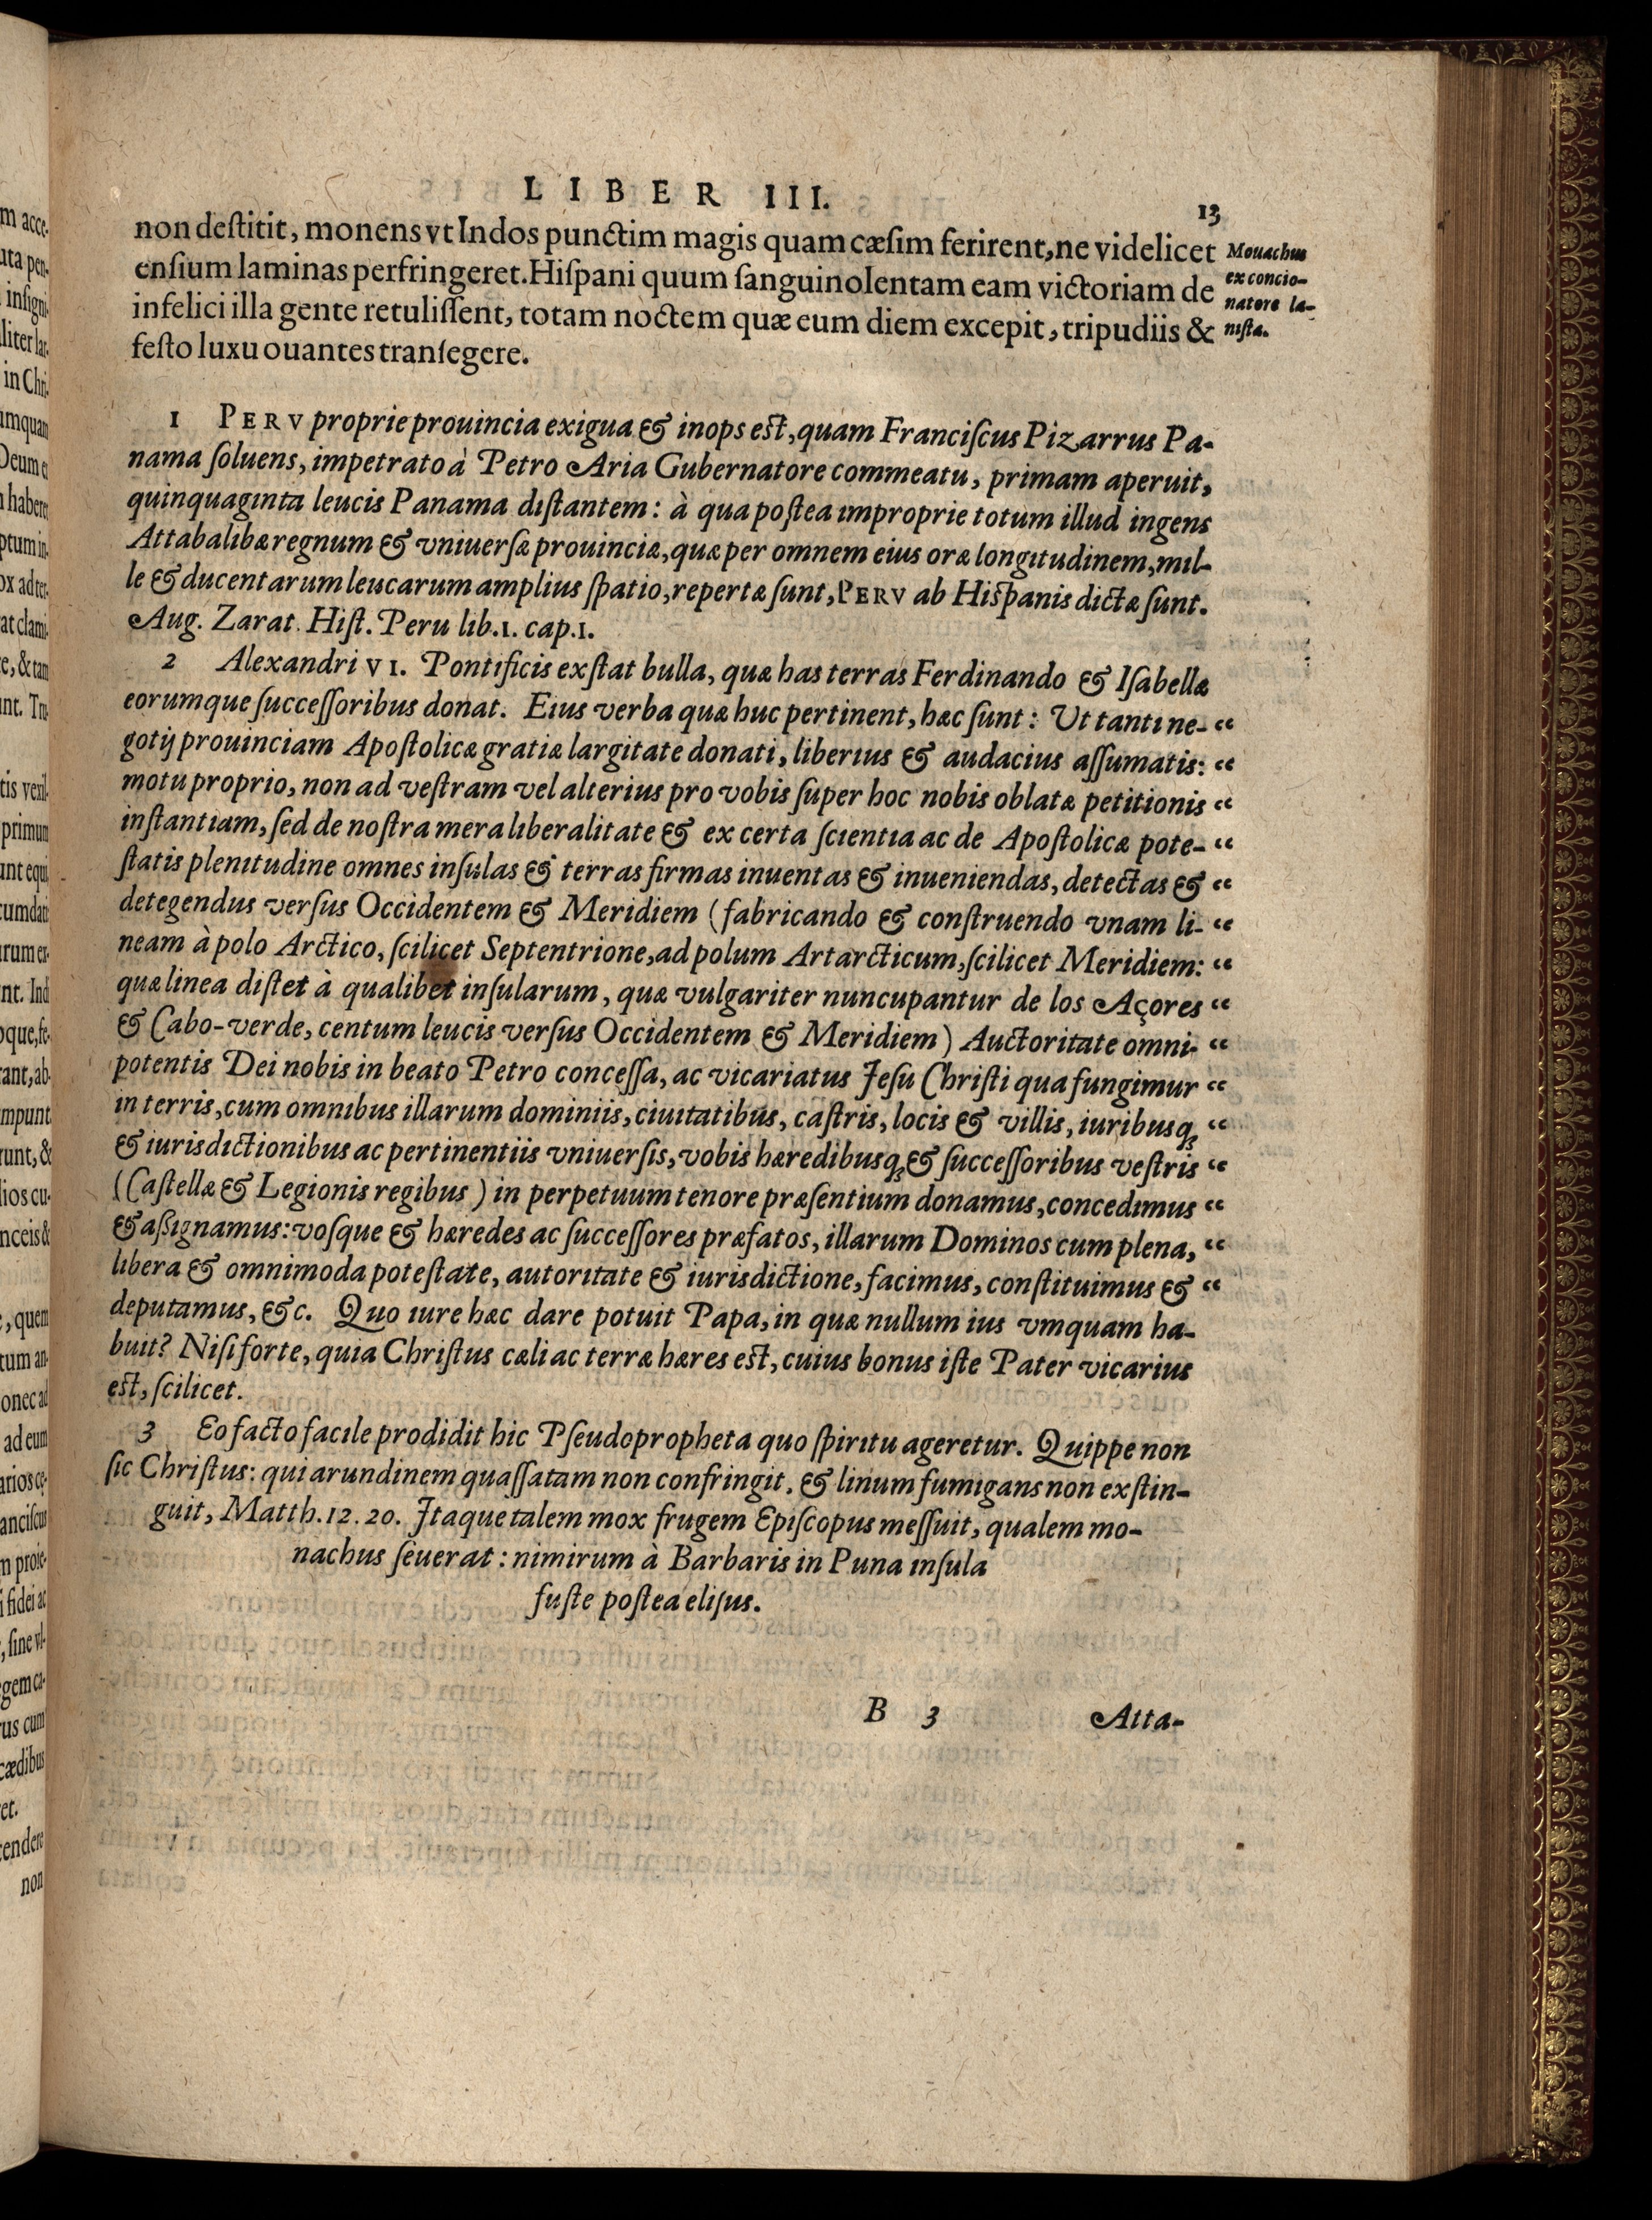 LIBER III. 13
non deſtitit, monens vt Indos punctim magis quam cæſim ferirent, ne videlicet
enſium laminas perfringeret. Hiſpani quum ſanguinolentam eam victoriam de
infelici illa gente retuliſſent, totam noctem quæ eum diem excepit, tripudiis &
feſto luxu ouantes tranſegere.
Monachus
ex concio-
natore la-
niſta.
1 PERV proprie prouincia exigua & inops eſt, quam Franciſcus Pizarrus Pa-
nama ſoluens, impetrato à Petro Aria Gubernatore commeatu, primam aperuit,
quinquaginta leucis Panama diſtantem: à qua poſtea improprie totum illud ingens
Attabalibæ regnum & vniuerſæ prouinciæ, quæ per omnem eius oræ longitudinem, mil-
le & ducentarum leucarum amplius ſpatio, repertæ ſunt, PERV ab Hiſpanis dictæ ſunt.
Aug. Zarat. Hiſt. Peru lib.1. cap.1.
2 Alexandri VI. Pontificis exſtat bulla, quæ has terras Ferdinando & Iſabellæ
eorumque ſucceſſoribus donat. Eius verba quæ huc pertinent, hæc ſunt: Ut tanti ne- “
gotij prouinciam Apoſtolicæ gratiæ largitate donati, liberius & audacius aſſumatis: “
motu proprio, non ad veſtram vel alterius pro vobis ſuper hoc nobis oblatæ petitionis “
inſtantiam, ſed de noſtra mera liberalitate & ex certa ſcientia ac de Apoſtolicæ pote- “
ſtatis plenitudine omnes inſulas & terras firmas inuentas & inueniendas, detectas & “
detegendus verſus Occidentem & Meridiem (fabricando & conſtruendo vnam li- “
neam à polo Arctico, ſcilicet Septentrione, ad polum Artarcticum, ſcilicet Meridiem: “
quæ linea diſtet à qualibet inſularum, quæ vulgariter nuncupantur de los Açores “
& Cabo-verde, centum leucis verſus Occidentem & Meridiem) Auctoritate omni- “
potentis Dei nobis in beato Petro conceſſa, ac vicariatus Jeſu Chriſti qua fungimur “
in terris, cum omnibus illarum dominiis, ciuitatibus, caſtris, locis & villis, iuribusq; “
& iurisdictionibus ac pertinentiis vniuerſis, vobis hæredibusq; & ſucceſſoribus veſtris “
(Caſtellæ & Legionis regibus) in perpetuum tenore præſentium donamus, concedimus “
& aßignamus: voſque & hæredes ac ſucceſſores præfatos, illarum Dominos cum plena, “
libera & omnimoda poteſtate, autoritate & iurisdictione, facimus, conſtituimus & “
deputamus, &c. Quo iure hæc dare potuit Papa, in quæ nullum ius vmquam ha-
buit? Niſi forte, quia Chriſtus cæli ac terræ hæres eſt, cuius bonus iſte Pater vicarius
eſt, ſcilicet.
3 Eo facto facile prodidit hic Pſeudopropheta quo ſpiritu ageretur. Quippe non
ſic Chriſtus: qui arundinem quaſſatam non confringit, & linum fumigans non exſtin-
guit, Matth.12.20. Itaque talem mox frugem Epiſcopus meſſuit, qualem mo-
nachus ſeuerat: nimirum à Barbaris in Puna inſula
fuſte poſtea eliſus.
B 3 Atta-